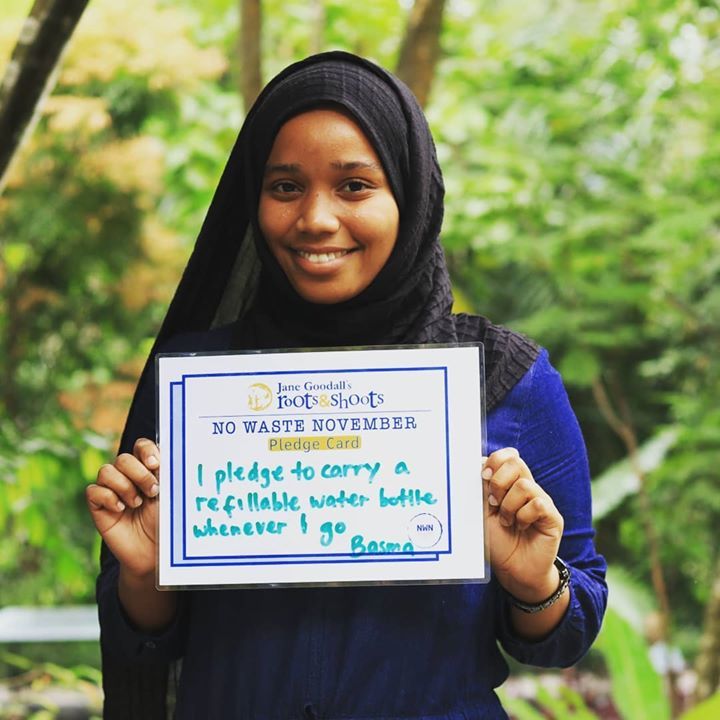 Jane Goodall's
roots&shoots
NO WASTE NOVEMBER
Pledge Card
I pledge to carry a
refillable water bottle
whenever I go
Basma
NWN